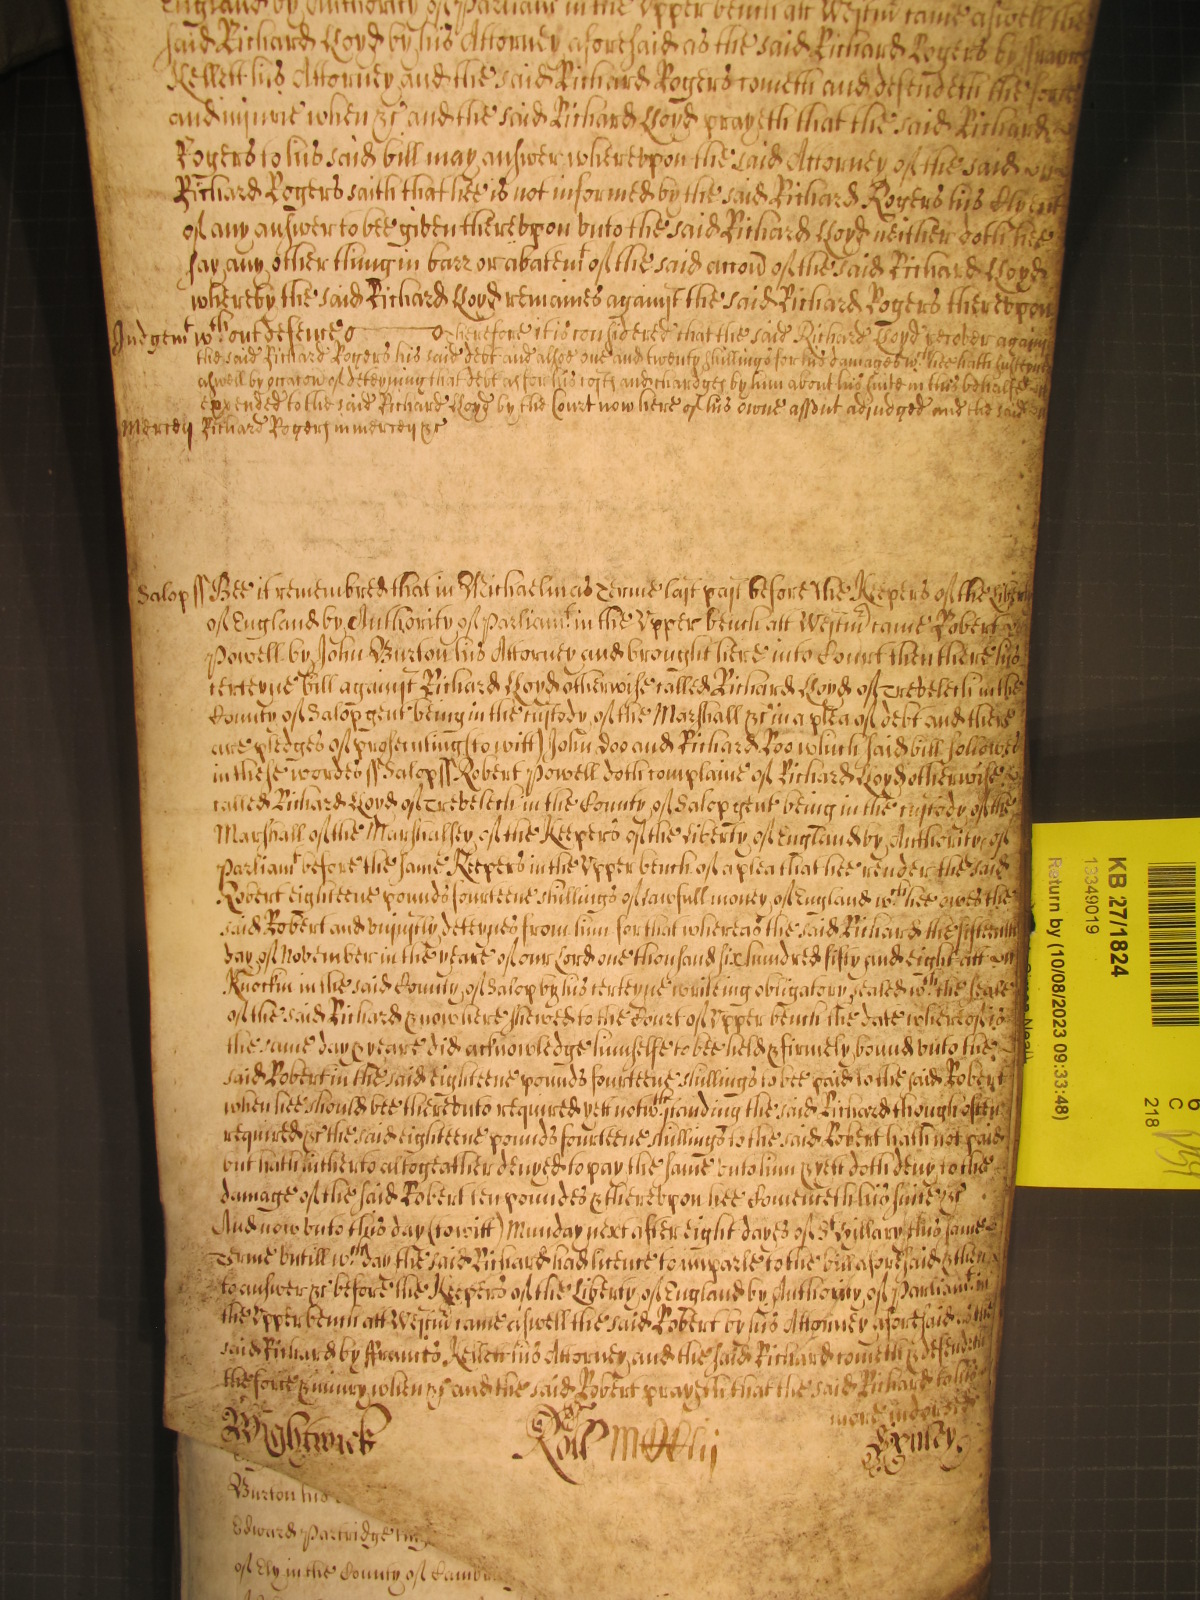 England by Authority of Parliamt in the Upper bench att Westmr came aswell the
said Richard Lloyd by his Attorney aforesaid as the said Richard Rogers by Francis
Kellett his Attorney and the said Richard Rogers cometh and defendeth the force
and iniurie when &c and the said Richard Lloyd prayeth that the said Richard
Rogers to his said bill may answer whereupon the said Attorney of the said
Richard Rogers saith that hee is not informed by the said Richard Rogers his Clyent
of any answer to bee given therevpon vnto the said Richard Lloyd neither doth hee
say any other thing in barr or abatemt of the said accon of the said Richard Lloyd
whereby the said Richard Lloyd remaines against the said Richard Rogers therevpon
Judgemt wthout defence Therefore it is considered that the said Richard Lloyd recover against
the said Richard Rogers his said debt and alsoe one and twenty shillings for his damages wch hee hath susteyned
aswell by occasion of deteyning that debt as for his costs and chardges by him about his suite in this behalfe
expended to the said Richard Lloyd by the Court now here of his owne assent adiudged and the said
Mercy Richard Rogers in mercy &c
Salop ss Bee it remembred that in Michaelmas Terme last past before the Keepers of the Liberty
of England by Authority of Parliamt in the Vpper bench att Westmr came Robert
Powell by John Burton his Attorney and brought here into Court then there his
certeyne bill against Richard Lloyd otherwise called Richard Lloyd of Trebelech in the
County of Salop gent being in the custody of the Marshall &c in a plea of debt and there
are pledges of prosecuting (to witt) John Doo and Richard Roo which said bill followes
in these wordes ss Salop ss Robert Powell doth complaine of Richard Lloyd otherwise
called Richard Lloyd of Trebelech in the County of Salop gent being in the custody of the
Marshall of the Marshalsey of the Keepers of the Liberty of England by Authority of
Parliamt before the same Keepers in the Vpper bench of a plea that hee render the said
Robert eighteene pounds fourteene shillings of lawfull money of England wch hee owes the
said Robert and vniustly deteynes from him for that whereas the said Richard the fifteenth
day of November in the yeare of our Lord one thousand six hundred fifty and eight att
Knockin in the said County of Salop by his certeyne writeing obligatory sealed wth the seale
of the said Richard & now here shewed to the Court of Vpper bench the date whereof is
the same day & yeare did acknowledge himselfe to bee held & firmely bound vnto the
said Robert in the said eighteene pounds fourteene shillings to bee paid to the said Robert
when hee should bee therevnto required yett notwthstanding the said Richard though often
required &c the said eighteene pounds fourteene shillings to the said Robert hath not paid
but hath hitherto altogeather denyed to pay the same vnto him & yett doth deny to the
damage of the said Robert ten poundes & therevpon hee Comenceth his suite &c
And now vnto this day (to witt) Munday next after eight dayes of St Hillary this same
Terme vntill wch day the said Richard had licence to imparle to the bill aforesaid & then
to answer &c before the Keepers of the Liberty of England by Authority of Parliamt in
the Vpper bench att Westmr came aswell the said Robert by his Attorney aforesaid as the
said Richard by ffrancis Kellett his Attorney and the said Richard cometh & defendeth
the force & iniury when &c and the said Robert prayeth that the said Richard to his
more indorsed
Wightwick Roll
Burton his
Edward Partridge
of Ely in the County of Camb
KB 27/1824
13349019
Return by (10/08/2023 09:33:48)
6
C
218